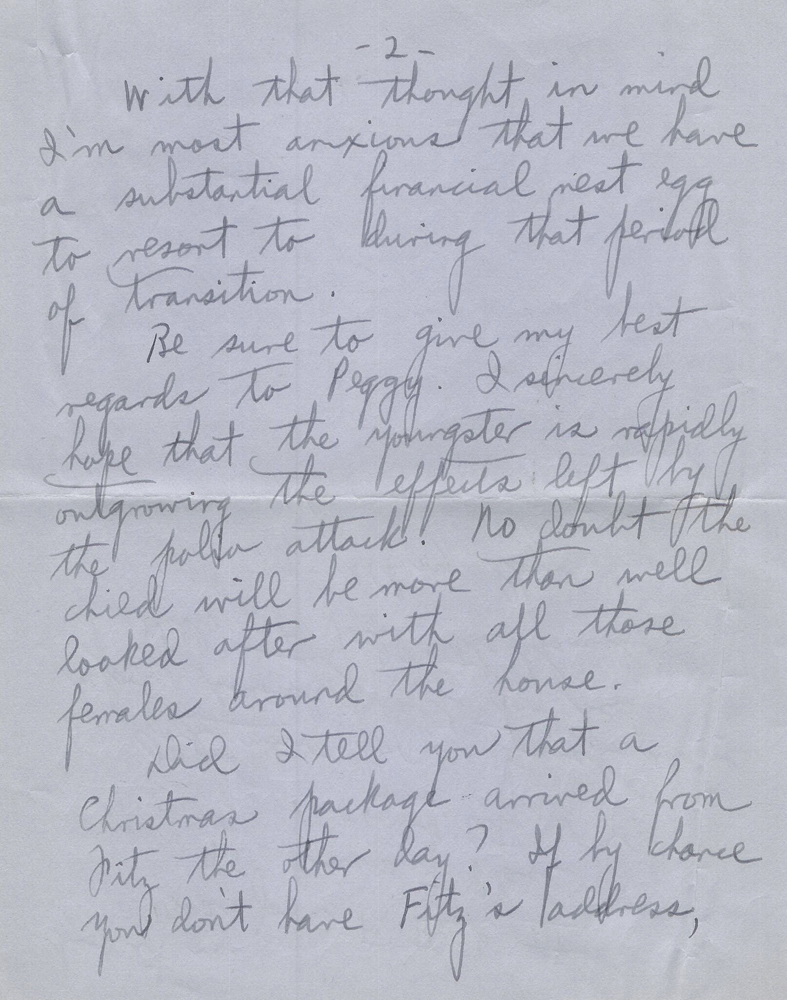 - 2 -
With that thought in mind
I'm most anxious that we have
a substantial financial nest egg
to resort to during that period
of transition.
Be sure to give my best
regards to Peggy. I sincerely
hope that the youngster is rapidly
outgrowing the effects left by
the polio attack. No doubt the
child will be more than well
looked after with all those
females around the house.
Did I tell you that a
Christmas package arrived from
Fitz the other day? If by chance
you don't have Fitz's address,